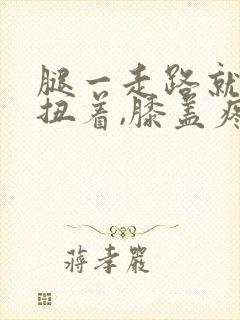 腿一走路就
扭着,膝盖疼
蒋孝严